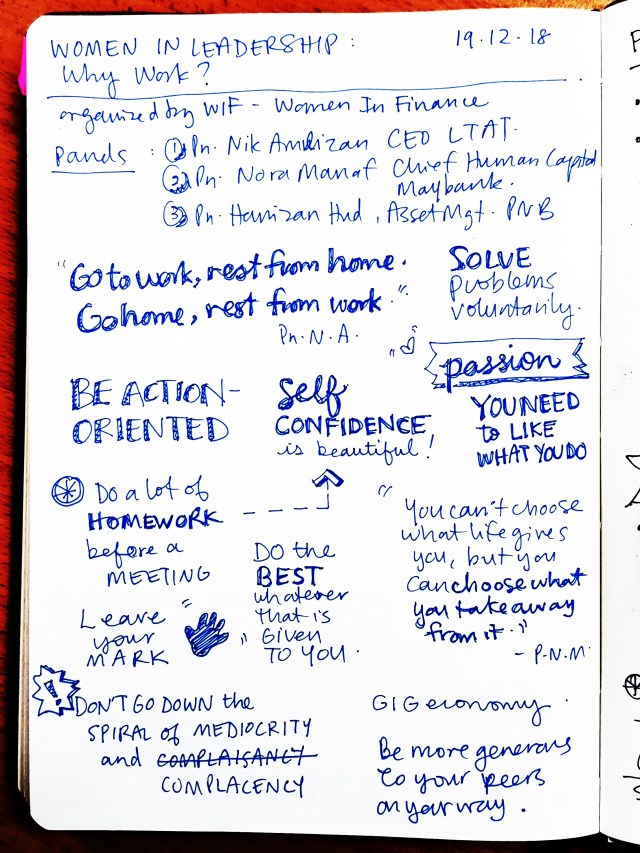 WOMEN IN LEADERSHIP: 19.12.18
Why Work?
organized by WIF - Women In Finance
Panels : ① Pn. Nik Amlizan CEO LTAT.
② Pn. Nora Manaf Chief Human Capital
Maybank.
③ Pn. Hanizan Hud, Asset Mgt. PNB
"Go to work, rest from home.
Go home, rest from work."
Pn. N. A.
SOLVE
problems
voluntarily.
passion
YOU NEED
to LIKE
WHAT YOU DO
BE ACTION-
ORIENTED
Self
CONFIDENCE
is beautiful!
Do a lot of
HOMEWORK
before a
MEETING
Leave
your
MARK
DO the
BEST
whatever
that is
Given
TO YOU.
"You can't choose
what life gives
you, but you
can choose what
you take away
from it."
- P.N.M.
! DON'T GO DOWN the
SPIRAL of MEDIOCRITY
and COMPLAISANCY
COMPLACENCY
GIG economy.
Be more generous
to your peers
on your way.